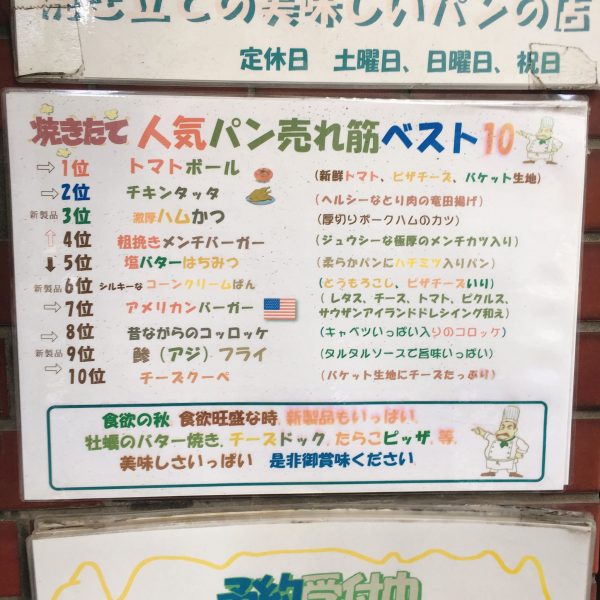 焼き立ての美味しいパンの店
定休日 土曜日、日曜日、祝日
焼きたて 人気パン売れ筋ベスト10
⇨ 1位 トマトボール (新鮮トマト、ピザチーズ、バケット生地)
⇨ 2位 チキンタッタ (ヘルシーなとり肉の竜田揚げ)
新製品 3位 激厚ハムかつ (厚切りポークハムのカツ)
⇧ 4位 粗挽きメンチバーガー (ジュウシーな極厚のメンチカツ入り)
⬇ 5位 塩バターはちみつ (柔らかパンにハチミツ入りパン)
新製品 6位 シルキーなコーンクリームぱん (とうもろこし、ピザチーズいり)
⇨ 7位 アメリカンバーガー (レタス、チーズ、トマト、ピクルス、
サウザンアイランドドレシイング和え)
⇨ 8位 昔ながらのコッロッケ (キャベツいっぱい入りのコロッケ)
新製品 9位 鯵(アジ)フライ (タルタルソースで旨味いっぱい)
⇨ 10位 チーズクーペ (バケット生地にチーズたっぷり)
食欲の秋、食欲旺盛な時、新製品もいっぱい、
牡蠣のバター焼き、チーズドック、たらこピッザ、等、
美味しさいっぱい 是非御賞味ください
予約受付中